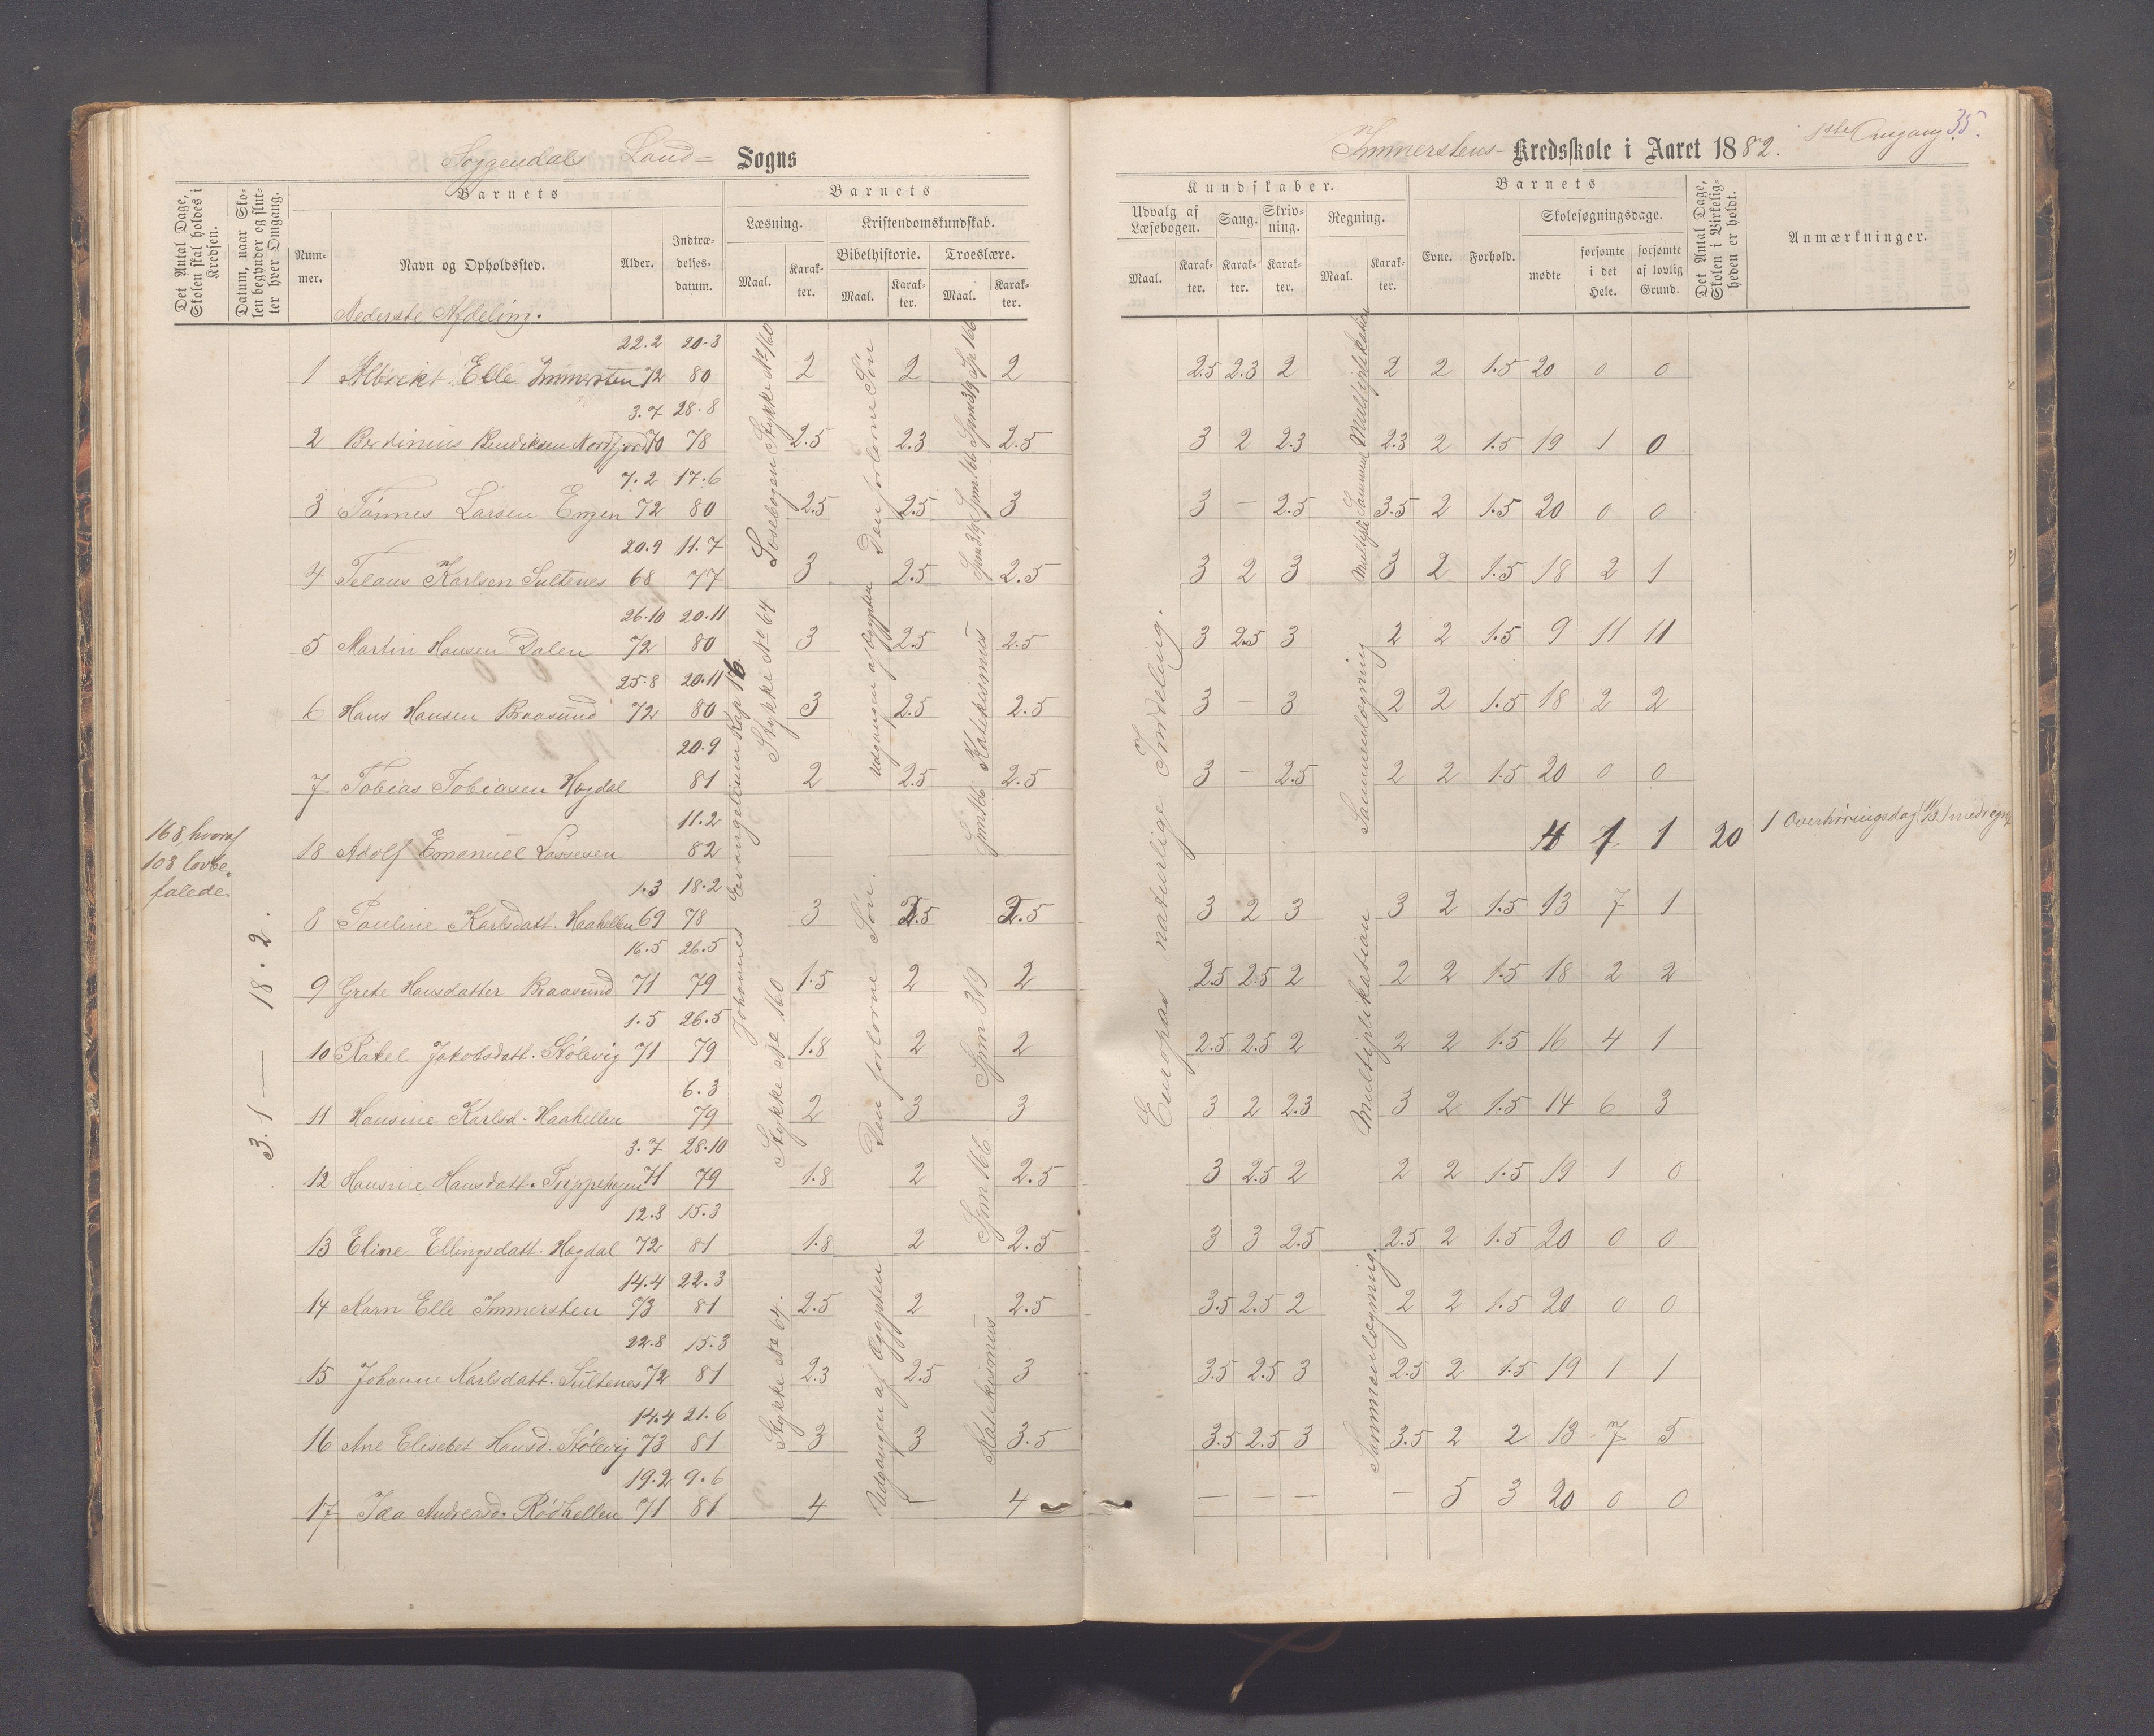 Soggendals Land= Sogns
Immerstens- Kredsskole i Aaret 1882. 1ste Omgang 35.
Det Antal Dage, Skolen skal holdes i Kredsen.
Datum, naar Skolen begynder og slutter hver Omgang.
Barnets
Nummer.
Navn og Opholdssted.
Alder.
Indtrædelsesdatum.
Barnets
Læsning.
Maal.
Karakter.
Kristendomskundskab.
Bibelhistorie.
Maal.
Karakter.
Troeslære.
Maal.
Karakter.
Kundskaber.
Udvalg af Læsebogen.
Maal.
Karakter.
Sang.
Karakter.
Skrivning.
Karakter.
Regning.
Maal.
Karakter.
Barnets
Evne.
Forhold.
Skolesøgningsdage.
mødte
forsømte i det Hele.
forsømte af lovlig Grund.
Det Antal Dage, Skolen i Virkeligheden er holdt.
Anmærkninger.
Nederste Afdeling.
22.2 20-3
1 Albrekt Elle Immersten 72 80 2 2 2 2.5 2.3 2 2 2 1.5 20 0 0
3.7 28.8
2 Berdinius Bendiksen Nordfjord 70 78 2.5 2.3 2.5 3 2 2.3 2.3 2 1.5 19 1 0
7.2 17.6
3 Tønnes Larsen Engen 72 80 2.5 2.5 3 3 — 2.5 3.5 2 1.5 20 0 0
20.9 11.7
4 Telaus Karlsen Sultenes 68 77 3 2.5 2.5 3 2 3 3 2 1.5 18 2 1
26.10 20.11
5 Martin Hansen Dalen 72 80 3 2.5 2.5 3 2.5 3 2 2 1.5 9 11 11
25.8 20.11
6 Hans Hansen Braasund 72 80 3 2.5 2.5 3 — 3 2 2 1.5 18 2 2
20.9
7 Tobias Tobiasen Hægdal 81 2 2.5 2.5 3 — 2.5 2 2 1.5 20 0 0
11.2
18 Adolf Emanuel Lassesen 82 4 1 1 20 1 Overhøringsdag
1.3 18.2
8 Pauline Karlsdatt. Haahellen 69 78 3 2.5 2.5 3 2 3 3 2 1.5 13 7 1
16.5 26.5
9 Grete Hansdatter Braasund 71 79 1.5 2 2 2.5 2.5 2 2 2 1.5 18 2 2
1.5 26.5
10 Rakel Jakobsdatt. Stölevig 71 79 1.8 2 2 2.5 2.5 2 2 2 1.5 16 4 1
6.3
11 Hansine Karlsd. Haahellen 79 2 3 3 3 2 2.3 3 2 1.5 14 6 3
3.7 28.10
12 Hansine Hansdatt. 71 79 1.8 2 2.5 3 2.5 2 2 2 1.5 19 1 0
12.8 15.3
13 Eline Ellingsdatt. Hægdal 72 81 1.8 2 2.5 3 3 2.5 2.5 2 1.5 20 0 0
14.4 22.3
14 Karn Elle Immersten 73 81 2.5 2 2.5 3.5 2.5 2 2 2 1.5 20 0 0
22.8 15.3
15 Johanne Karlsdatt. Sultenes 72 81 2.3 2.5 3 3.5 2.5 3 2.5 2 1.5 19 1 1
14.4 21.6
16 Ane Elisebet Hansd. Stölevig 73 81 3 3 3.5 3.5 2.5 3 3.5 2 2 13 7 5
19.2 9.6
17 Ida Andreasd. Rödhellen 71 81 4 — 4 — — — — 5 3 20 0 0
168 hvoraf
108 lovbe-
falede.
3.1 — 18.2.
Johannes Evangelium Kap 16
Læsebogen Stykke No 160
Stykke No 64
Stykke No 160
Stykke No 64.
Den forlorne Sön
Udgangen af Ægypten
Den forlorne Sön.
Udgangen af Ægypten
Spm 166
Katekismus
Spm 319
Spm 166.
Katekismus
Europas naturlige Inddeling.
Multiplikation
Sammenlægning
Multiplikation
Sammenlægning.